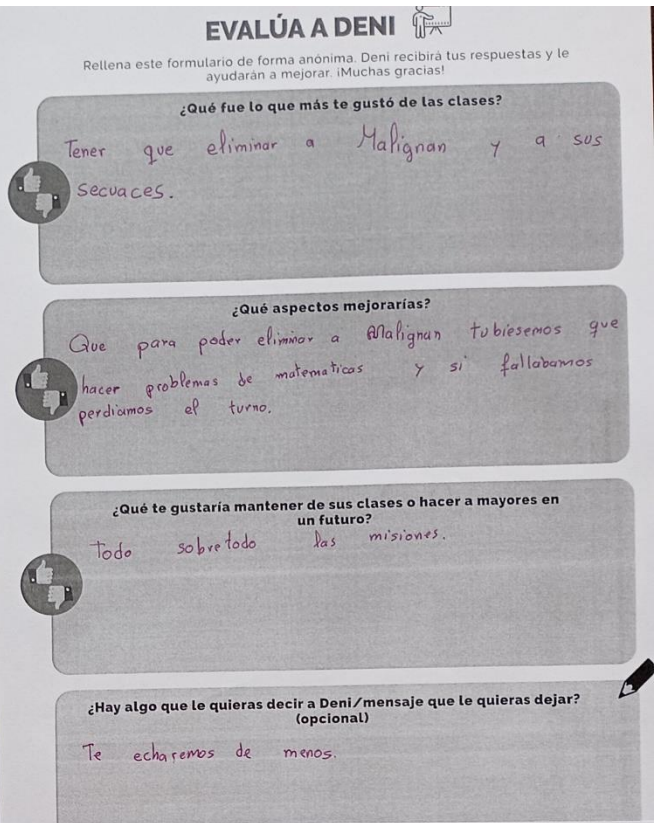 EVALÚA A DENI
Rellena este formulario de forma anónima. Deni recibirá tus respuestas y le
ayudarán a mejorar. ¡Muchas gracias!
¿Qué fue lo que más te gustó de las clases?
Tener que eliminar a Malignan y a sus
secuaces.
¿Qué aspectos mejorarías?
Que para poder eliminar a Malignan tubiesemos que
hacer problemas de matematicas y si fallabamos
perdiamos el turno.
¿Qué te gustaría mantener de sus clases o hacer a mayores en
un futuro?
Todo sobretodo las misiones.
¿Hay algo que le quieras decir a Deni/mensaje que le quieras dejar?
(opcional)
Te echaremos de menos.